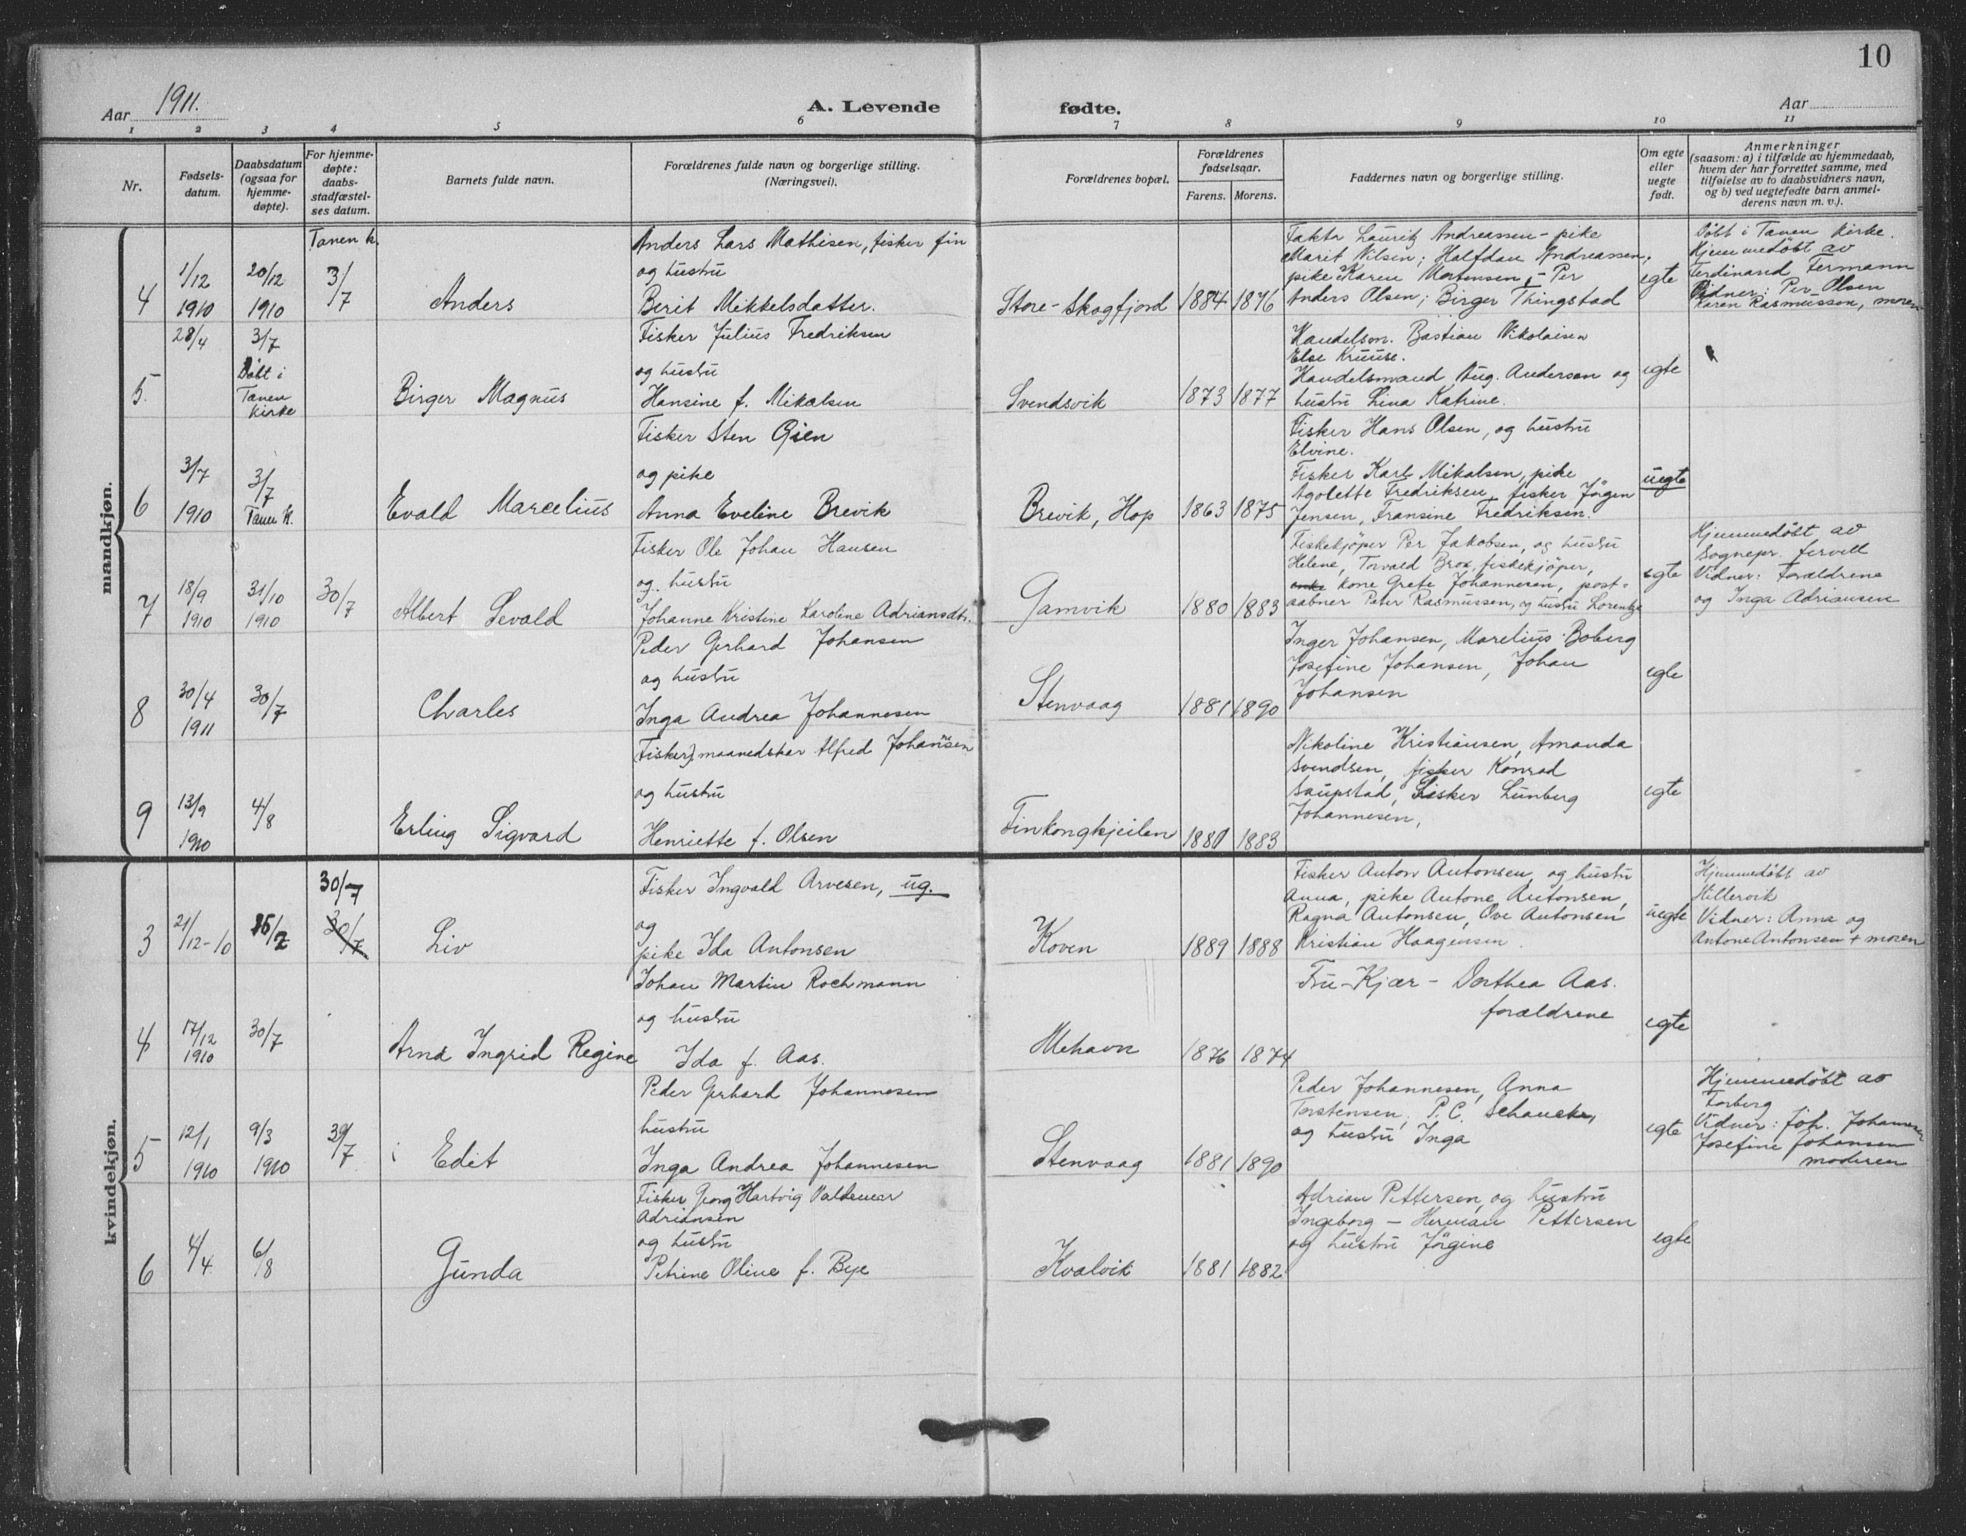 10
Aar 1911.
A. Levende
fødte.
Aar
1 2 3 4 5 6 7 8 9 10 11
Nr.
Fødsels-
datum.
Daabsdatum
(ogsaa for
hjemme-
døpte).
For hjemme-
døpte:
daabs-
stadfæstel-
ses datum.
Barnets fulde navn.
Forældrenes fulde navn og borgerlige stilling.
(Næringsvei).
Forældrenes bopæl.
Forældrenes
fødselsaar.
Farens. Morens.
Faddernes navn og borgerlige stilling.
Om egte
eller
uegte
født.
Anmerkninger
(saasom: a) i tilfælde av hjemmedaab,
hvem der har forrettet samme, med
tilføielse av to daabsvidners navn,
og b) ved uegtefødte barn anmel-
derens navn m. v.).
mandkjøn.
4
1/12
1910
20/12
1910
Tanen k.
3/7
Anders
Anders Lars Mathisen, fisker fin
og hustru
Berit Mikkelsdatter.
Store-Skogfjord
1884 1876
Faktor Lauritz Andreassen - pike
Marit Nilsen; Halfdan Andreassen,
pike Karen Mortensen - Per
Anders Olsen; Birger Thingstad
egte
Döbt i Tanen Kirke.
Hjemmedöbt av
Ferdinand Fermann
Vidner: Per Olsen
Karen Rasmussen, moren
5
28/4
3/7
Döbt i
Tanen
Kirke
Birger Magnus
Fisker Julius Fredriksen
og hustru
Hansine f. Mikalsen
Svendsvik
1873 1877
Handelsm. Bastian Nikolaisen
Else Kruuse.
Handelsmand Aug. Andersen og
hustru Lina Katrine.
egte
6
3/7
1910
3/7
Tanen K.
Evald Marcelius
Fisker Sten Gjen
og pike
Anna Eveline Brevik
Brevik, Hop
1863 1875
Fisker Hans Olsen, og hustru
Elvine.
Fisker Karl Mikalsen, pike
Agolette Fredriksen, fisker Jörgen
Jensen, Fransine Fredriksen.
uegte
7
18/9
1910
31/10
1910
30/7
Albert Sevald
Fisker Ole Johan Hansen
og hustru
Johanne Kristine Karoline Adriansdtr.
Gamvik
1880 1883
Fiskekjöper Per Jakobsen, og hustru
Helene, Torvald Brox, fiskekjöper,
kone Grete Johannesen, post-
aabner Peter Rasmussen, og hustru Lorentze
egte
Hjemmedöbt av
Sognepr. Fervell
Vidner: Forældrene
og Inga Adriansen
8
30/4
1911
30/7
Charles
Peder Gerhard Johansen
og hustru
Inga Andrea Johannesen
Stenvaag
1881 1890
Inger Johansen, Marelius Boberg
Josefine Johansen, Johan
Johansen
egte
9
13/9
1910
4/8
Erling Sigvard
(Fisker) maanedskar Alfred Johansen
og hustru
Henriette f. Olsen
Finkongkjeilen
1880 1883
Nikoline Kristiansen, Amanda
Svendsen, fisker Konrad
Saupstad, fisker Lunberg
Johannesen,
egte
kvindekjøn.
3
21/12-10
26/2
30/7
30/7
Liv
Fisker Ingvald Arvesen, ug.
og
pike Ida Antonsen
Koven
1889 1888
Fisker Anton Antonsen, og hustru
Anna, pike Antone Antonsen,
Ragna Antonsen, Ove Antonsen
Kristian Haagensen.
uegte
Hjemmedöbt av
Hillervik
Vidner: Anna og
Antone Antonsen + moren
4
17/12
1910
30/7
Arna Ingrid Regine
Johan Martin Rochmann
og hustru
Ida f. Aas.
Mehavn
1876 1874
Fru Kjær - Dorthea Aas.
forældrene
egte
5
12/1
1910
9/3
1910
30/7
Edit
Peder Gerhard Johannesen
hustru
Inga Andrea Johannesen
Stenvaag
1881 1890
Peder Johannesen, Anna
Torstensen, P.C. Schancke,
og hustru Inga
egte
Hjemmedöbt av
Forberg
Vidner: Joh. Johannesen
Josefine Johansen
moderen
6
4/4
6/8
Gunda
Fisker Georg Hartvig Valdemar
Adriansen
og hustru
Petrine Oline f. Bye
Kvalvik
1881 1882
Adrian Pettersen, og hustru
Ingeborg - Herman Pettersen
og hustru Jörgine
egte